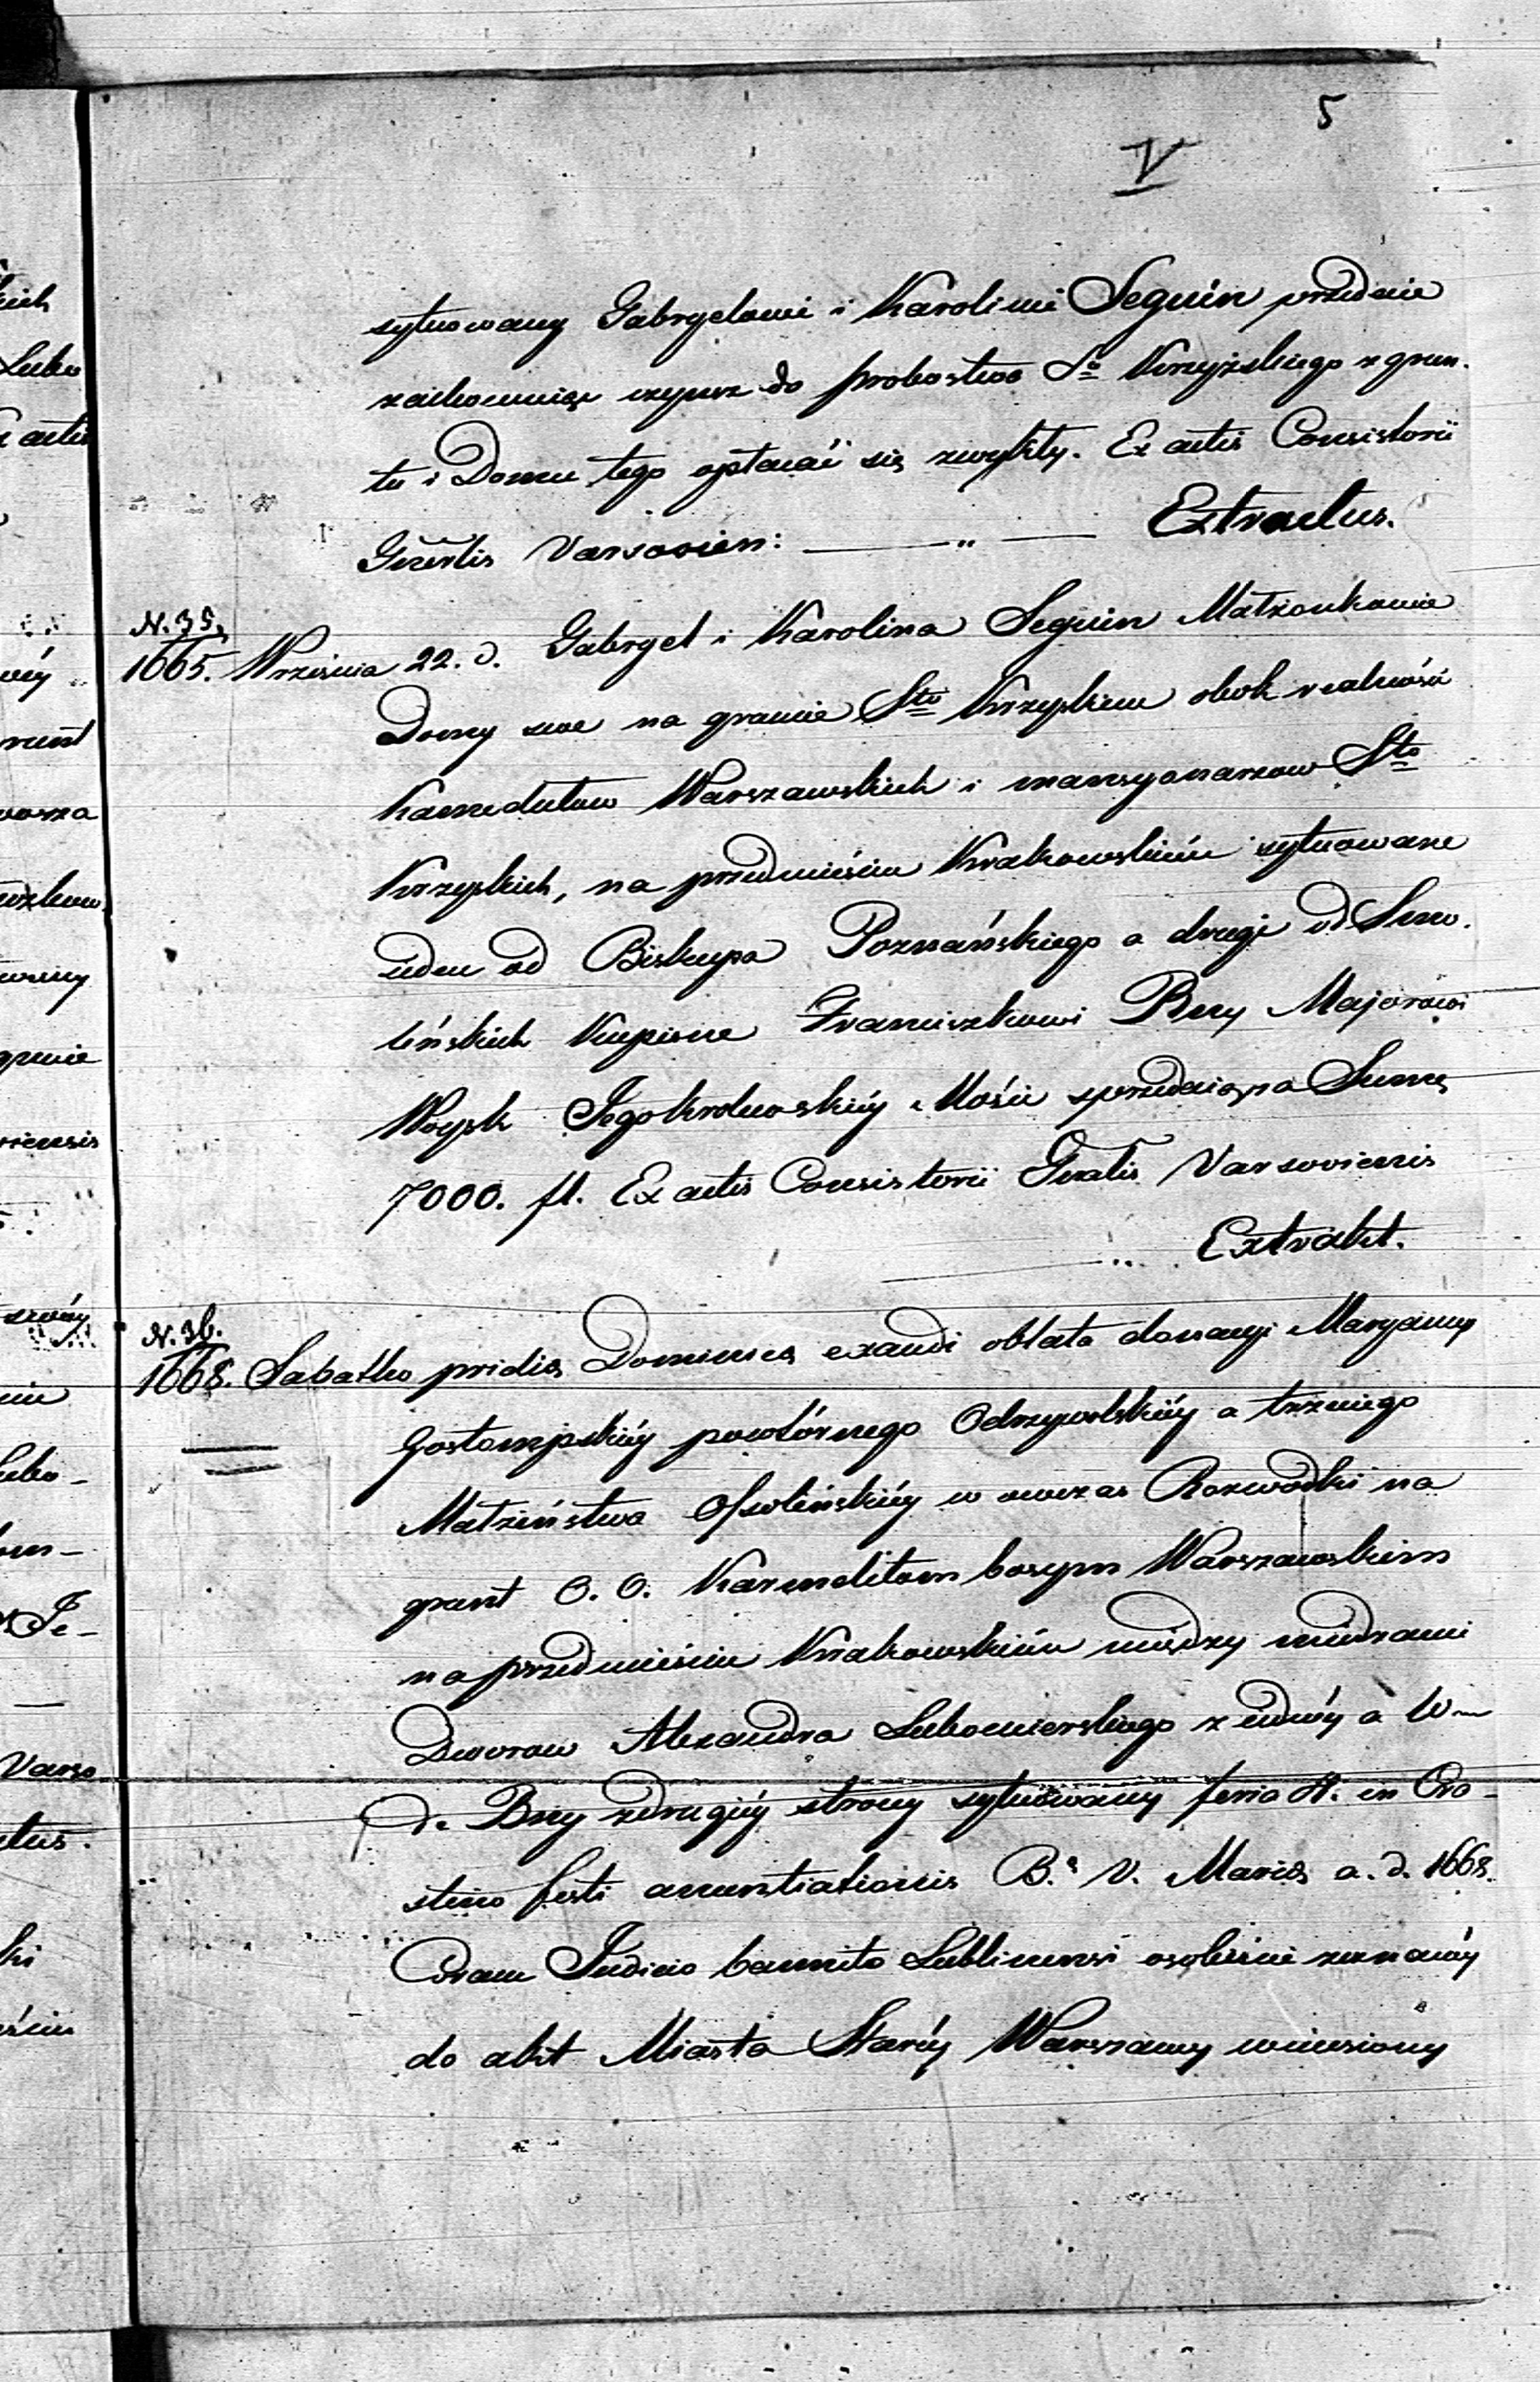 5
V
sytuowany Gabryelowi i Karolinie Seguin przedaie
zachowuiąc czynsz do probostwa Sto Krzyżskiego z grun.
tu i Domu tego opłacać się zwykły. Ex actis Consistorii
Gnrlis Varsovien: — „ — Extractus.
N. 35.
1665. Września 22. d. Gabryel i Karolina Seguin Małżonkowie
Domy swe na gruncie Sto Krzyskim obok realności
Kamedułow Warszawskich i mansyonarzow Sto
Krzyskich, na przedmieściu Krakowskiém sytuowane
ieden od Biskupa Poznańskiego a drugi od Smo.
leńskich Kupione Franciszkowi Bry Majorowi
Woysk Jego Krolewskiéy Mości sprzedaią za Summę
7000. fl. Ex actis Consistorii Gnalis Varsoviensis
Extrakt.
N. 36.
1668. Sabatho pridie Dominicæ exaudi oblata donacyi Maryanny
Gostompskiéy powtórnego Odrzywolskiéy a trzeciego
Małżeństwa Ossolińskiéy w owczas Rozwodki na
grunt O. O. Karmelitom bosym Warszawskim
na przedmieściu Krakowskiém między miedzami
Dworow Alexandra Lubomierskiego z iednéy a W
de Bry z drugiéy strony sytuowany feria II. in Cra-
stino festi annuntiationis B. V. Mariæ a. d. 1668.
Coram Judicio Lublinensi osobiście zeznanéy
do akt Miasta Staréy Warszawy wniesiony